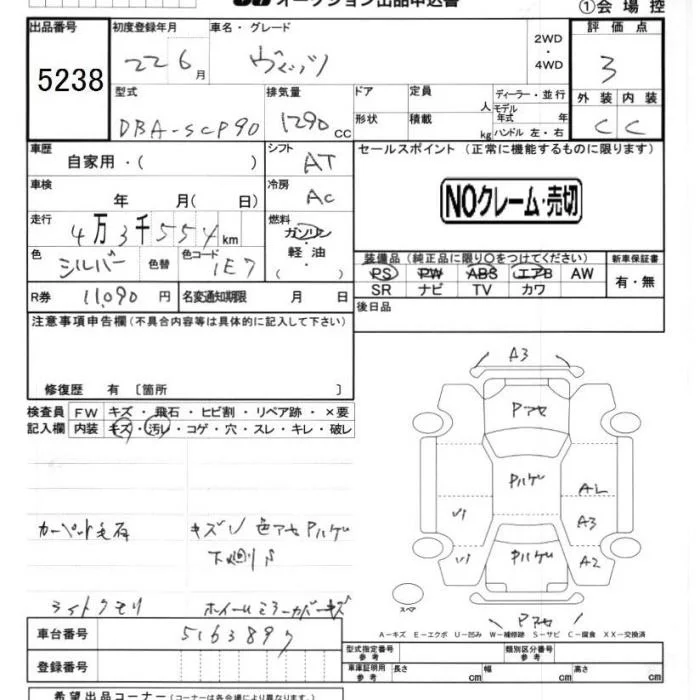 オークション出品申込書
①会場控
出品番号 初度登録年月 車名・グレード 評価点
5238 22 6月 ヴィッツ 2WD ・ 4WD 3
型式 排気量 ドア 定員 人 ディーラー・並行 外装 内装
DBA-SCP90 1290cc 形状 積載 kg モデル年式 年 ハンドル 左・右 C C
車歴 自家用・( ) シフト AT セールスポイント(正常に機能するものに限ります)
車検 年 月( 日) 冷房 AC NOクレーム・売切
走行 4万3千554km 燃料 ガソリン・軽油 ( )
色 シルバー 色替 色コード 1E7
装備品(純正品に限り○をつけてください) 新車保証書
PS PW ABS エアB AW 有・無
SR ナビ TV カワ
R券 11,090円 名変通知期限 月 日 後日品
注意事項申告欄(不具合内容等は具体的に記入して下さい)
修復歴 有 〔箇所 〕
検査員 FW キズ・飛石・ヒビ割・リペア跡・×要
記入欄 内装 キズ・汚レ・コゲ・穴・スレ・キレ・破レ
A3
Pアセ
Pハゲ
A2
A3
A2
Pハゲ
Pアセ
スペア
カーペット毛石 キズU 色アセ Pハゲ
下廻りS
ライトクモリ ホイールミラーカバーキズ
A-キズ E-エクボ U-凹み W-補修跡 S-サビ C-腐食 XX-交換済
車台番号 5163897
登録番号
型式指定番号 類別区分番号
車庫証明用参考 長さ cm 幅 cm 高さ cm
参考
希望出品コーナー(コーナーは会場により異なります。)